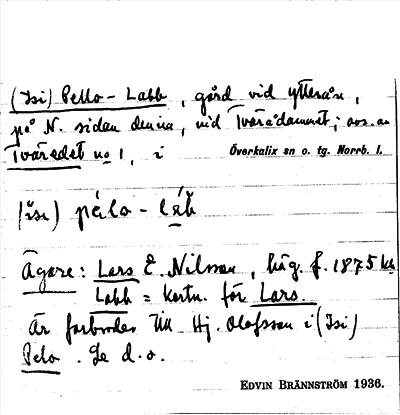 (Isi) Pello-Labb, gård vid ytterån,
på N. sidan denna, vid Tvärådammet;
Tvärådet no 1, i Överkalix sn o. tg. Norrb. l.
(isi) pélo-láb
Ägare: Lars E. Nilsson, häg. f. 1875
Labb = kortn. för Lars.
Är farbroder till Hj. Olofsson i (Isi)
Pelo. Se d. o.
EDVIN BRÄNNSTRÖM 1936.